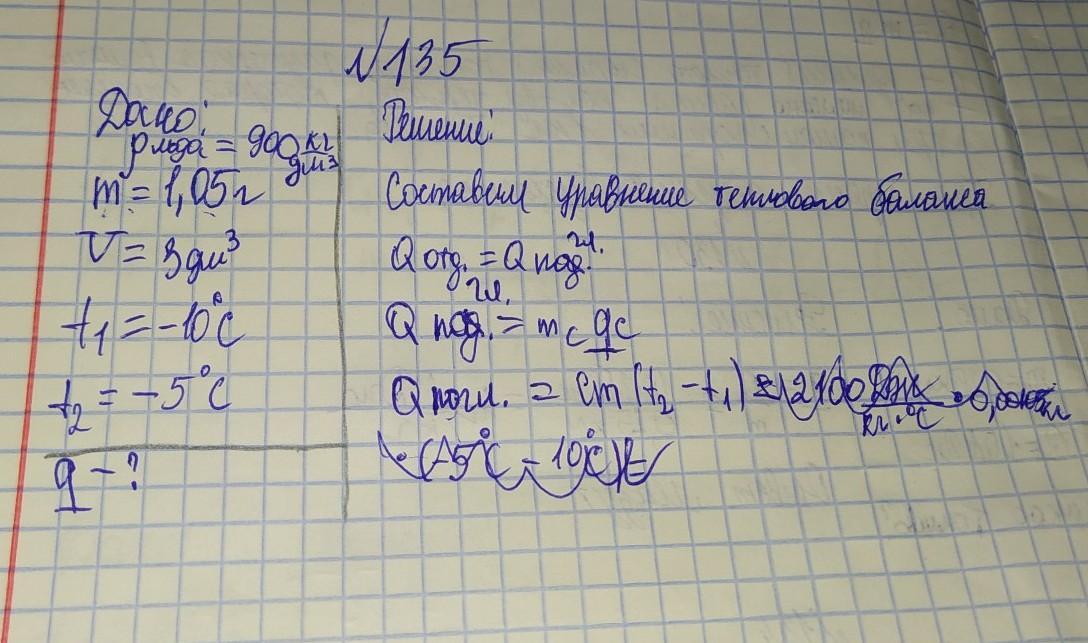 №135
Дано:
ρ льда = 900 кг/дм³
m = 1,05 г
V = 3 дм³
t₁ = -10°C
t₂ = -5°C
q - ?
Решение:
Составим уравнение теплового баланса
Q отд. = Q погл.
Q погл. = m c q c
Q погл. = cm (t₂ - t₁) = 2100 Дж/кг·°C ·
· (-5°C - 10°C) =